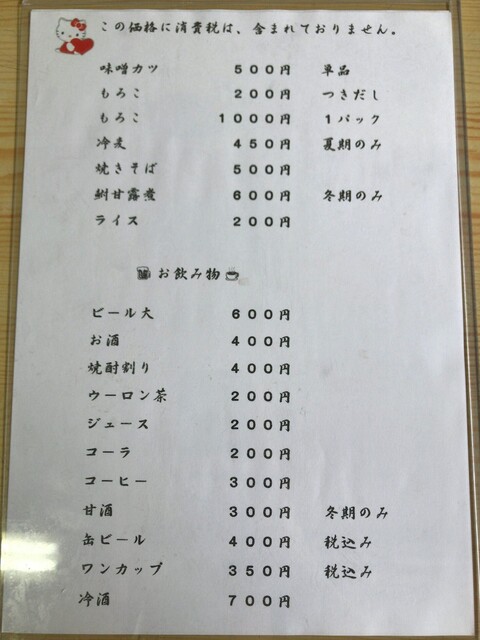 この価格に消費税は、含まれておりません。
味噌カツ ５００円 単品
もろこ ２００円 つきだし
もろこ １０００円 １パック
冷麦 ４５０円 夏期のみ
焼きそば ５００円
鮒甘露煮 ６００円 冬期のみ
ライス ２００円
お飲み物
ビール大 ６００円
お酒 ４００円
焼酎割り ４００円
ウーロン茶 ２００円
ジュース ２００円
コーラ ２００円
コーヒー ３００円
甘酒 ３００円 冬期のみ
缶ビール ４００円 税込み
ワンカップ ３５０円 税込み
冷酒 ７００円